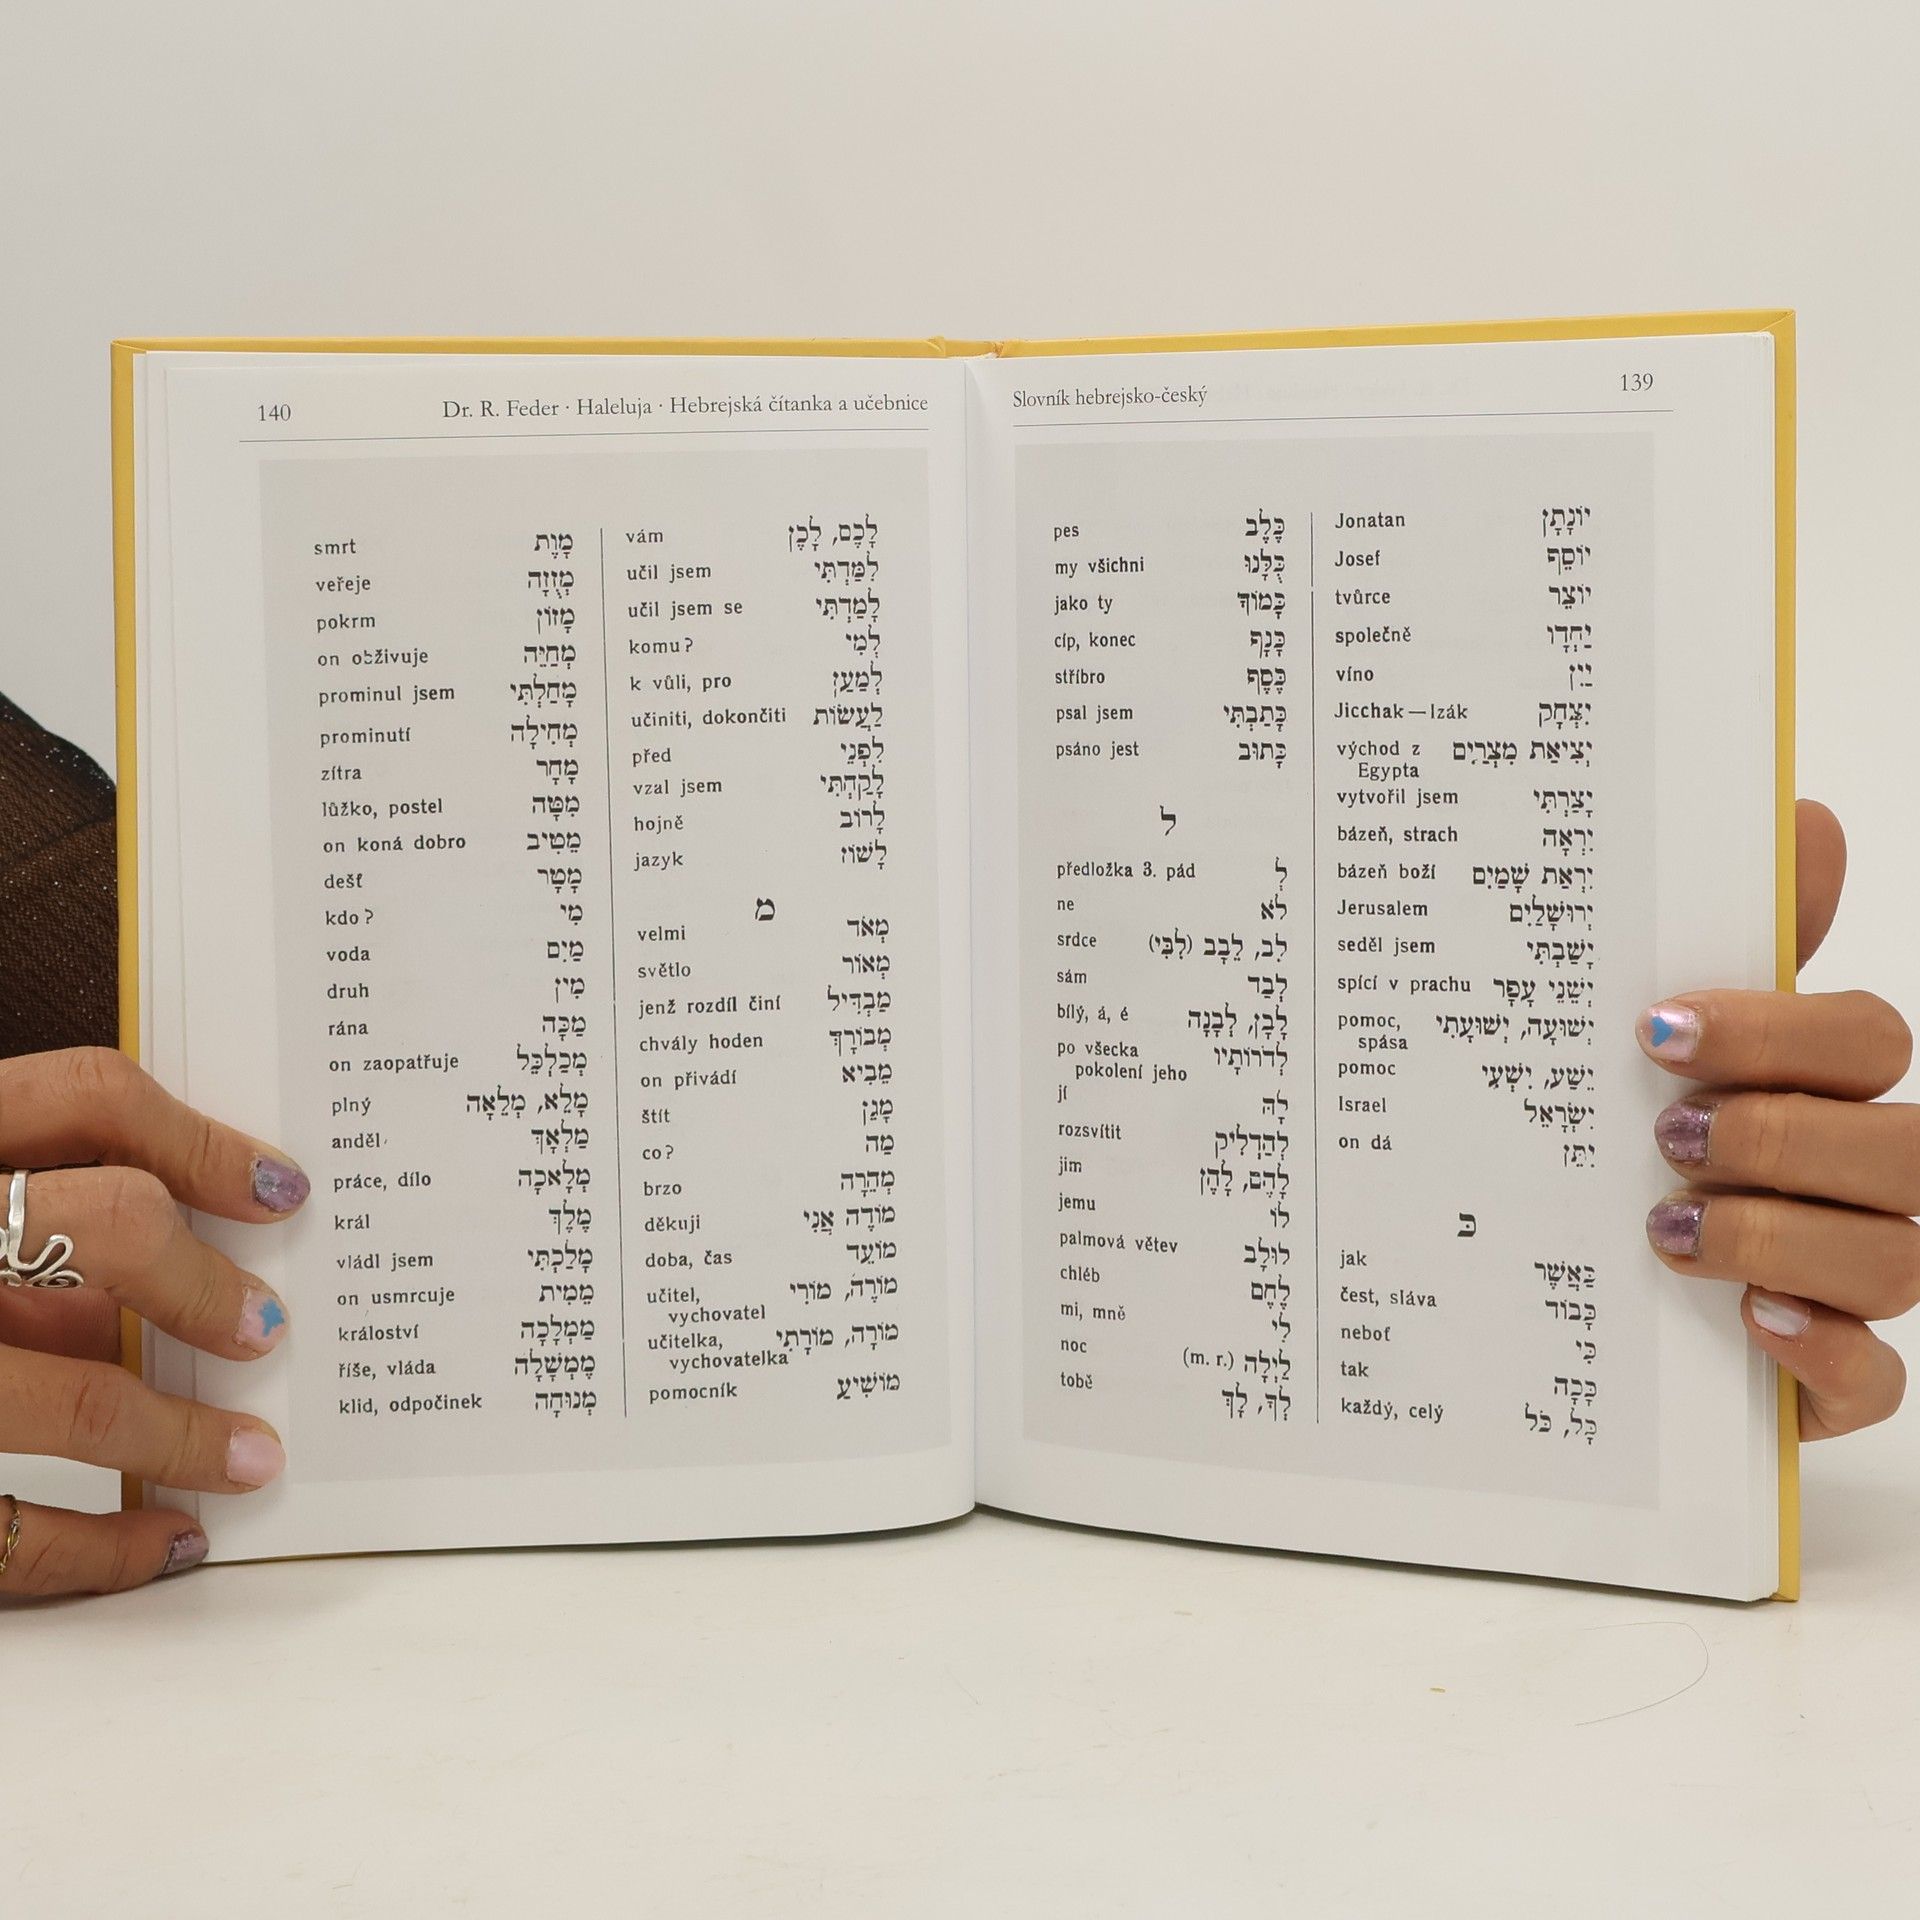 Slovník hebrejsko-český 139
Jonatan יוֹנָתָן
Josef יוֹסֵף
tvůrce יוֹצֵר
společně יַחְדָו
víno יַיִן
Jicchak — Izák יִצְחָק
východ z יְצִיאַת מִצְרַיִם
Egypta
vytvořil jsem יָצַרְתִּי
bázeň, strach יִרְאָה
bázeň boží יִרְאַת שָׁמַיִם
Jerusalem יְרוּשָׁלַיִם
seděl jsem יָשַׁבְתִּי
spící v prachu יְשֵׁנֵי עָפָר
pomoc, יְשׁוּעָה, יְשׁוּעָתִי
spása
pomoc יֵשַׁע, יִשְׁעִי
Israel יִשְׂרָאֵל
on dá יִתֵּן
כּ
jak כַּאֲשֶׁר
čest, sláva כָּבוֹד
neboť כִּי
tak כָּכָה
každý, celý כָּל, כֹּל
pes כֶּלֶב
my všichni כֻּלָּנוּ
jako ty כָּמוֹךָ
cíp, konec כָּנָף
stříbro כֶּסֶף
psal jsem כָּתַבְתִּי
psáno jest כָּתוּב
ל
předložka 3. pád לְ
ne לֹא
srdce לֵב, לֵבָב (לִבִּי)
sám לְבַד
bílý, á, é לָבָן, לְבָנָה
po všecka לְדֹרוֹתָיו
pokolení jeho
jí לָהּ
rozsvítit לְהַדְלִיק
jim לָהֶם, לָהֶן
jemu לוֹ
palmová větev לוּלָב
chléb לֶחֶם
mi, mně לִי
noc לַיְלָה (m. r.)
tobě לְךָ, לָךְ
140 Dr. R. Feder · Haleluja · Hebrejská čítanka a učebnice
vám לָכֶם, לָכֶן
učil jsem לִמַּדְתִּי
učil jsem se לָמַדְתִּי
komu? לְמִי
k vůli, pro לְמַעַן
učiniti, dokončiti לַעֲשׂוֹת
před לִפְנֵי
vzal jsem לָקַחְתִּי
hojně לָרוֹב
jazyk לָשׁוֹן
מ
velmi מְאֹד
světlo מָאוֹר
jenž rozdíl činí מַבְדִּיל
chvály hoden מְבוֹרָךְ
on přivádí מֵבִיא
štít מָגֵן
co? מַה
brzo מְהֵרָה
děkuji מוֹדֶה אֲנִי
doba, čas מוֹעֵד
učitel, מוֹרֶה, מוֹרִי
vychovatel
učitelka, מוֹרָה, מוֹרָתִי
vychovatelka
pomocník מוֹשִׁיעַ
smrt מָוֶת
veřeje מְזֻזָה
pokrm מָזוֹן
on obživuje מְחַיֵּה
prominul jsem מָחַלְתִּי
prominutí מְחִילָה
zítra מָחָר
lůžko, postel מִטָּה
on koná dobro מֵטִיב
dešť מָטָר
kdo? מִי
voda מַיִם
druh מִין
rána מַכָּה
on zaopatřuje מְכַלְכֵּל
plný מָלֵא, מְלֵאָה
anděl מַלְאָךְ
práce, dílo מְלָאכָה
král מֶלֶךְ
vládl jsem מָלַכְתִּי
on usmrcuje מֵמִית
království מַמְלָכָה
říše, vláda מֶמְשָׁלָה
klid, odpočinek מְנוּחָה